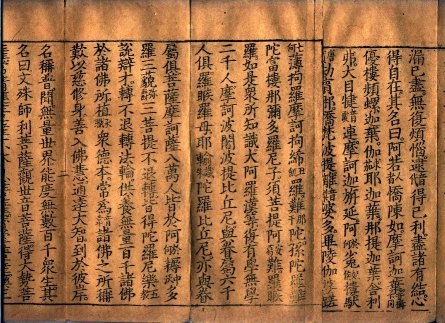 漏已盡無復煩惱逮得己利盡諸有結心
得自在其名曰阿若憍陳如摩訶迦葉
優樓頻螺迦葉伽耶迦葉那提迦葉舍利
弗大目犍連摩訶迦旃延阿㝹樓馱
劫賓那憍梵波提離婆多畢陵伽婆蹉
薄拘羅摩訶拘絺羅難陀孫陀羅難
陀富樓那彌多羅尼子須菩提阿難羅睺
羅如是衆所知識大阿羅漢等復有學無學
二千人摩訶波闍波提比丘尼與眷屬六千
人俱羅睺羅母耶輸陀羅比丘尼亦與眷
屬俱菩薩摩訶薩八萬人皆於阿耨多
羅三藐三菩提不退轉皆得陀羅尼樂
說辯才轉不退轉法輪供養無量百千諸佛
於諸佛所植衆德本常為諸佛之所稱
歎以慈修身善入佛慧通達大智到於彼岸
二
名稱普聞無量世界能度無數百千衆生其
名曰文殊師利菩薩觀世音菩薩得大勢菩